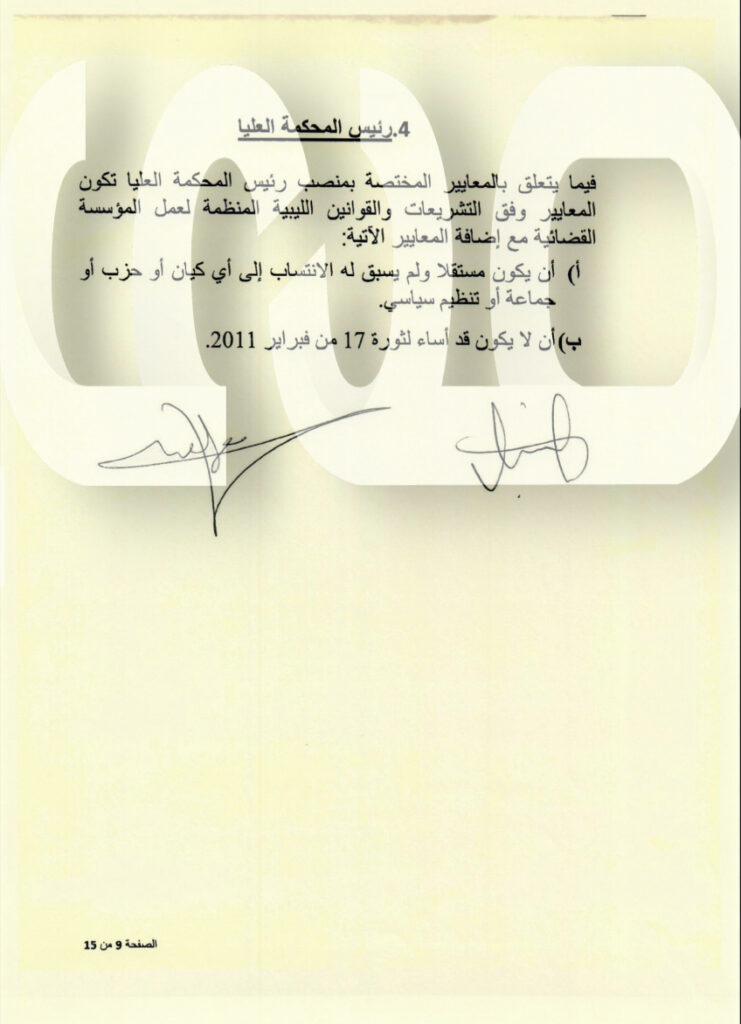 4.رئيس المحكمة العليا
فيما يتعلق بالمعايير المختصة بمنصب رئيس المحكمة العليا تكون
المعايير وفق التشريعات والقوانين الليبية المنظمة لعمل المؤسسة
القضائية مع إضافة المعايير الآتية:
أ) أن يكون مستقلا ولم يسبق له الانتساب إلى أي كيان أو حزب أو
جماعة أو تنظيم سياسي.
ب)أن لا يكون قد أساء لثورة 17 من فبراير 2011.
الصفحة 9 من 15